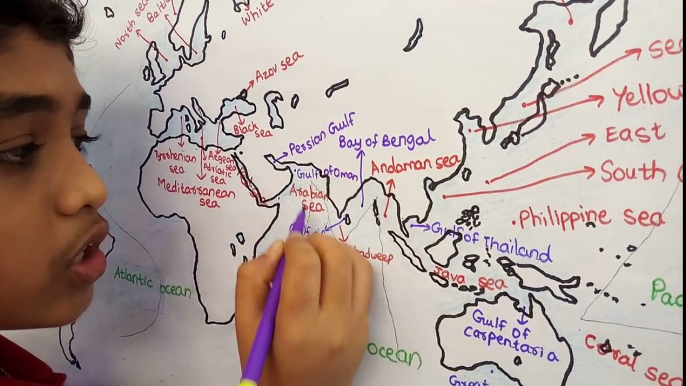 North sea
Baltic
White
Azov sea
Black
sea
Persian Gulf
Bay of Bengal
Gulf of Oman
Arabian
sea
Andaman sea
Tyrrhenian
sea
Aegean
Adriatic
sea
Mediterranean
sea
sea
Yellow
East
South
Philippine sea
Gulf of Thailand
Java sea
Atlantic ocean
ocean
Gulf of
carpentaria
Great
Coral sea
Pac